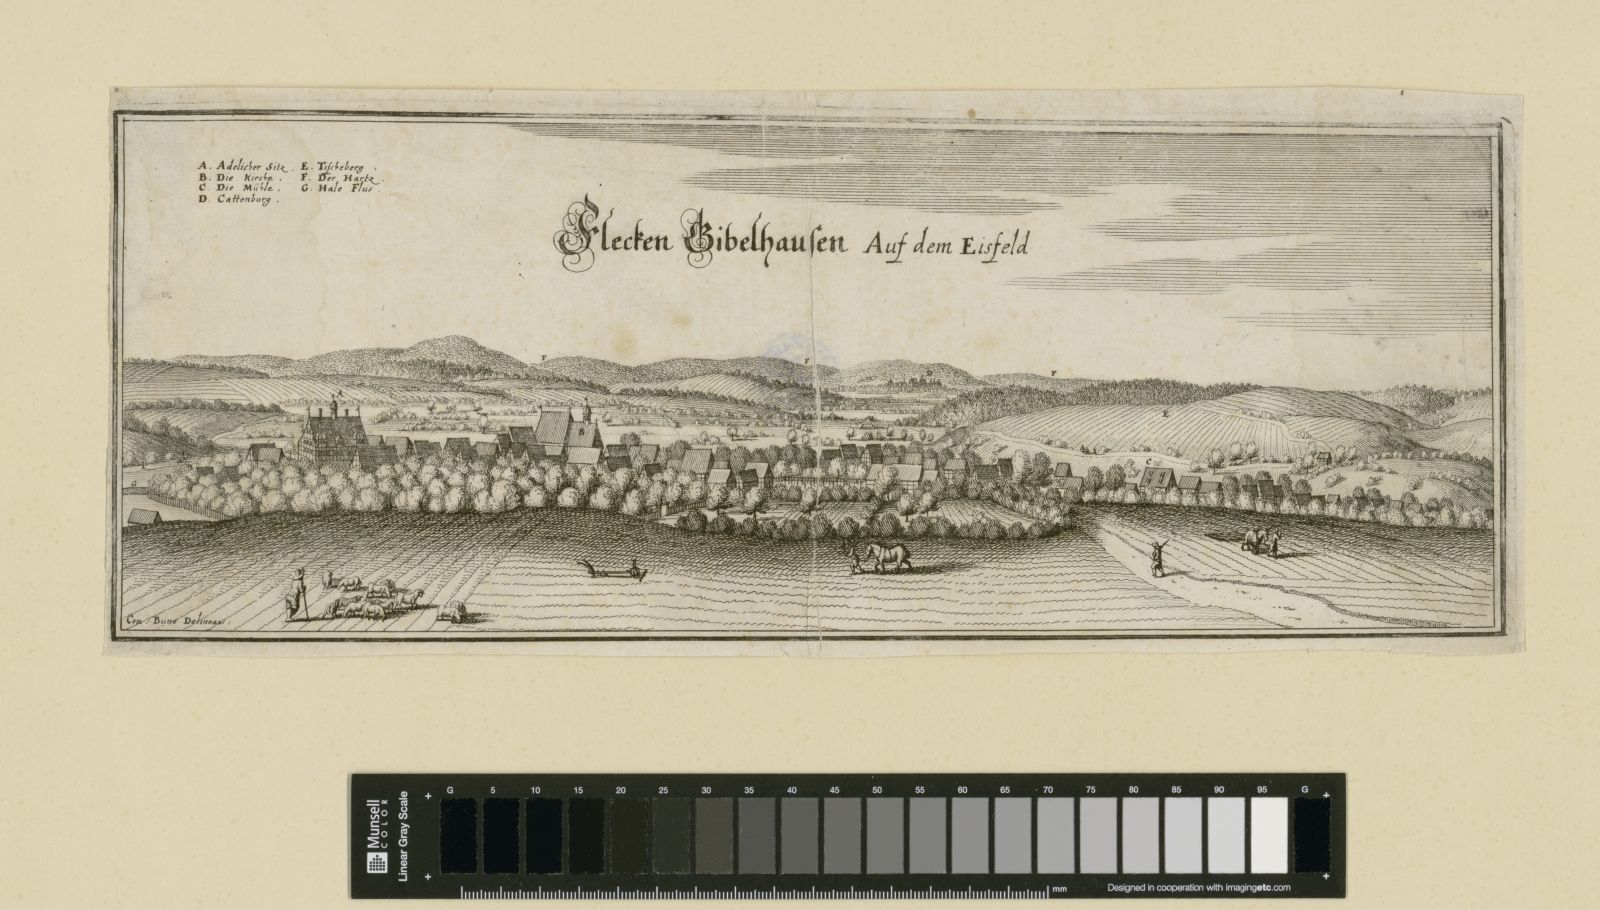 A. Adelicher Sitz. E. Tischeberg.
B. Die Kirche. F. Der Hartz.
C. Die Mühle. G. Hale Flus.
D. Cattenburg.
Flecken Gibelhausen Auf dem Eisfeld
F F F
D
A
E
C
G
Con: Buno Delineav:
Munsell
COLOR
Linear Gray Scale
G 5 10 15 20 25 30 35 40 45 50 55 60 65 70 75 80 85 90 95 G
mm
Designed in cooperation with imagingetc.com